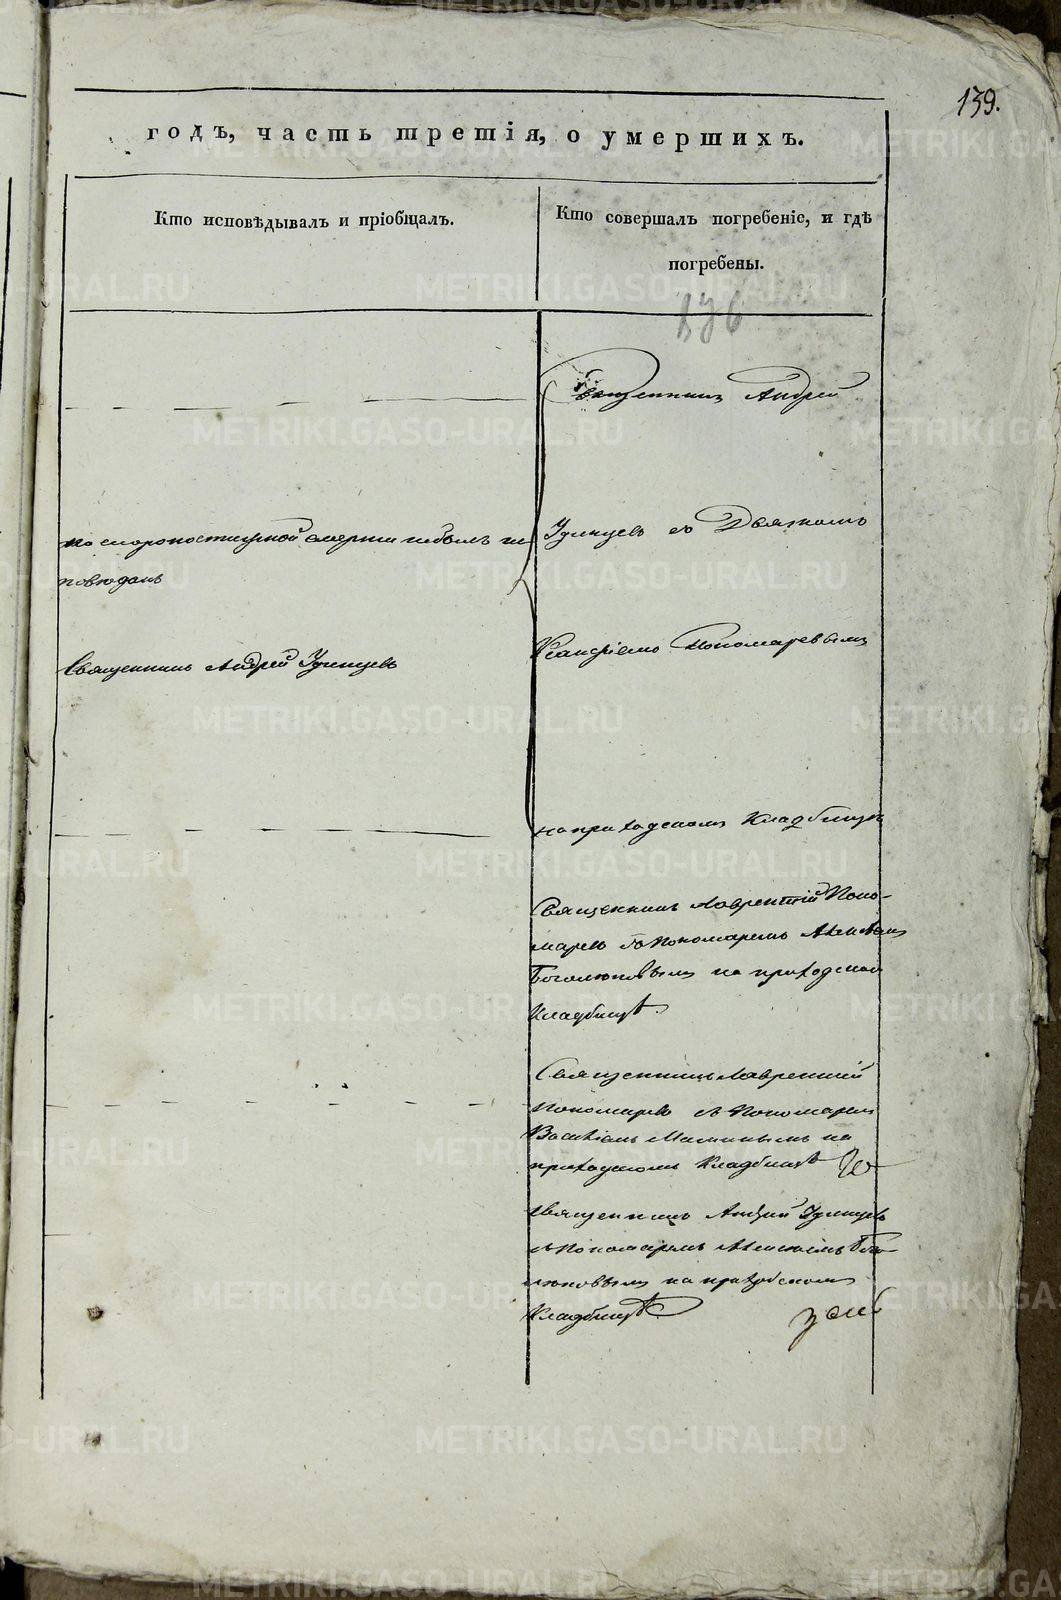 139.
годъ, часть третія, о умершихъ.
Кто исповѣдывалъ и пріобщалъ.
Кто совершалъ погребеніе, и гдѣ
погребены.
Священникъ Андрей
по скоропостижной смерти небылъ ис
повѣданъ
Удинцевъ съ Дьячкомъ
Священникъ Андрей Удинцевъ
Пономаревымъ
на приходскомъ Кладбищѣ
Священникъ Лаврентій Поно-
маревъ съ Пономаремъ Алексѣемъ
Боголюповымъ на приходскомъ
Кладбищѣ.
Священникъ Лаврентій
Пономаревъ съ Пономаремъ
Василіемъ Маминымъ на
приходскомъ Кладбищѣ
Священникъ Андрей Удинцевъ
съ Пономаремъ Алексѣемъ Бого-
люповымъ на приходскомъ
Кладбищѣ
METRIKI.GASO-URAL.RU